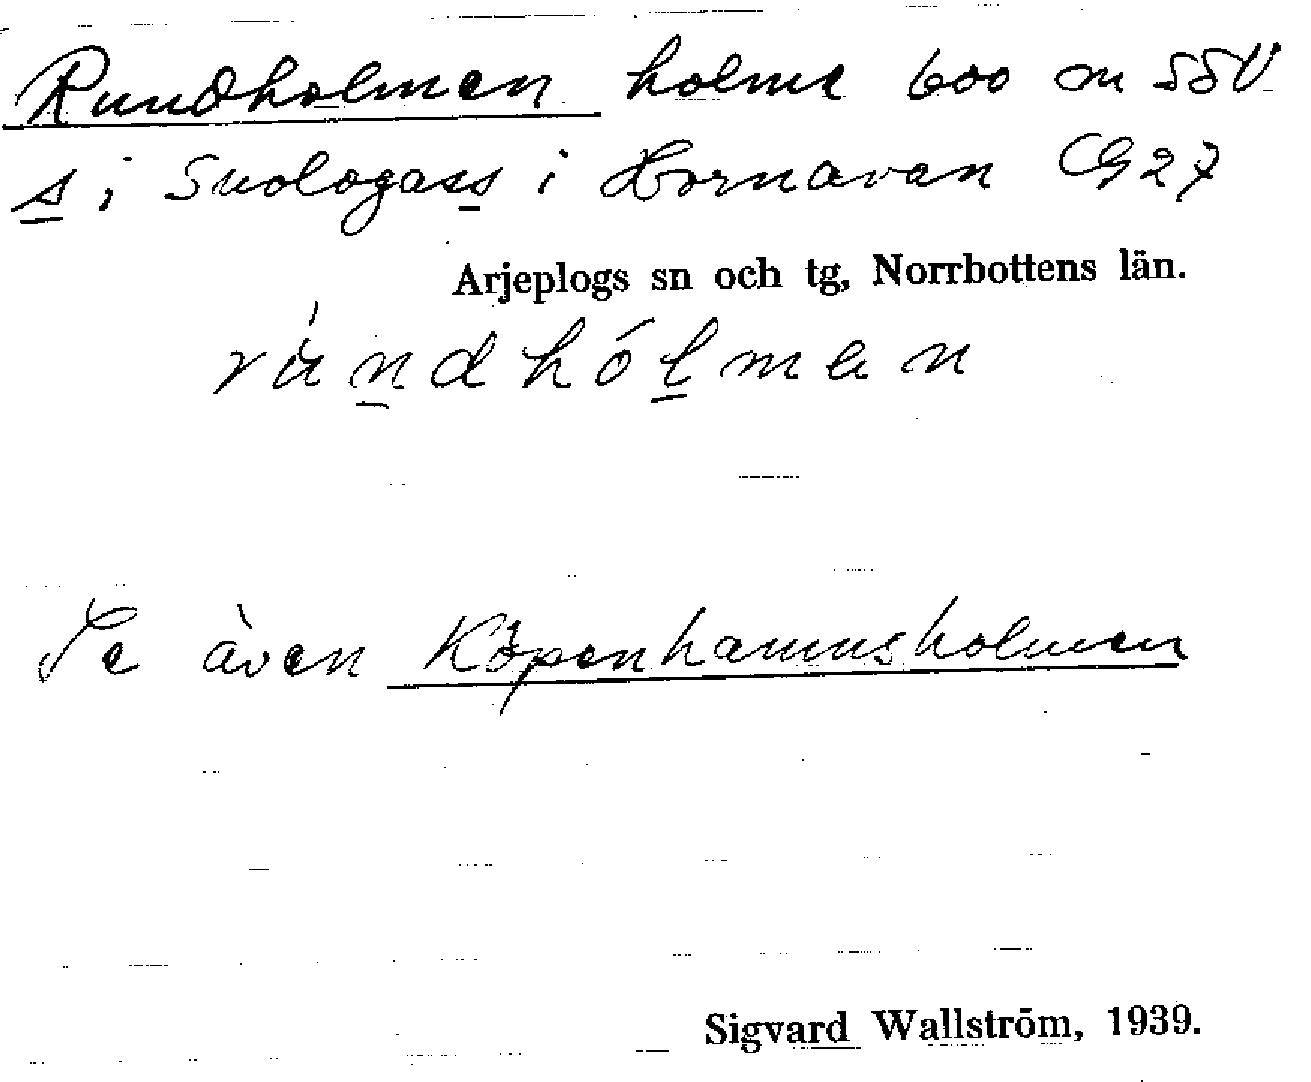 Rundholmen holme 600 m SSV
s i Suologass i Hornavan G 27
Arjeplogs sn och tg, Norrbottens län.
rúndhólman
Se även Köpenhamnsholmen
Sigvard Wallström, 1939.